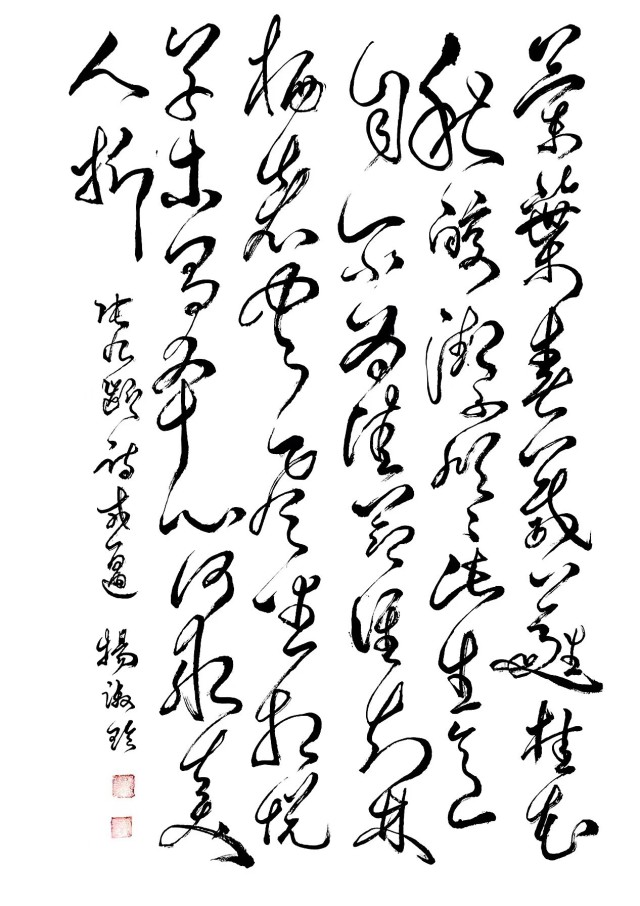 蘭葉春葳蕤桂花
秋皎潔欣〻此生意
自尔為佳節誰知林
栖者聞風坐相悅
草木有本心何求美
人折
張九齡詩感遇 楊淑珍